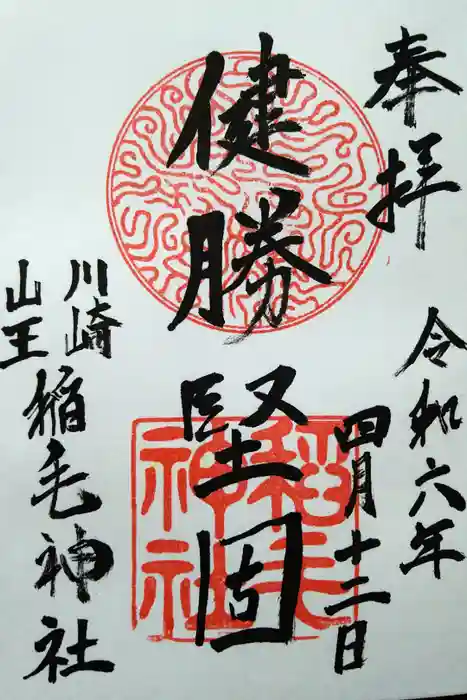 奉拝
令和六年
四月十三日
健勝
堅固
川崎
山王
稲毛神社
稲毛
神社